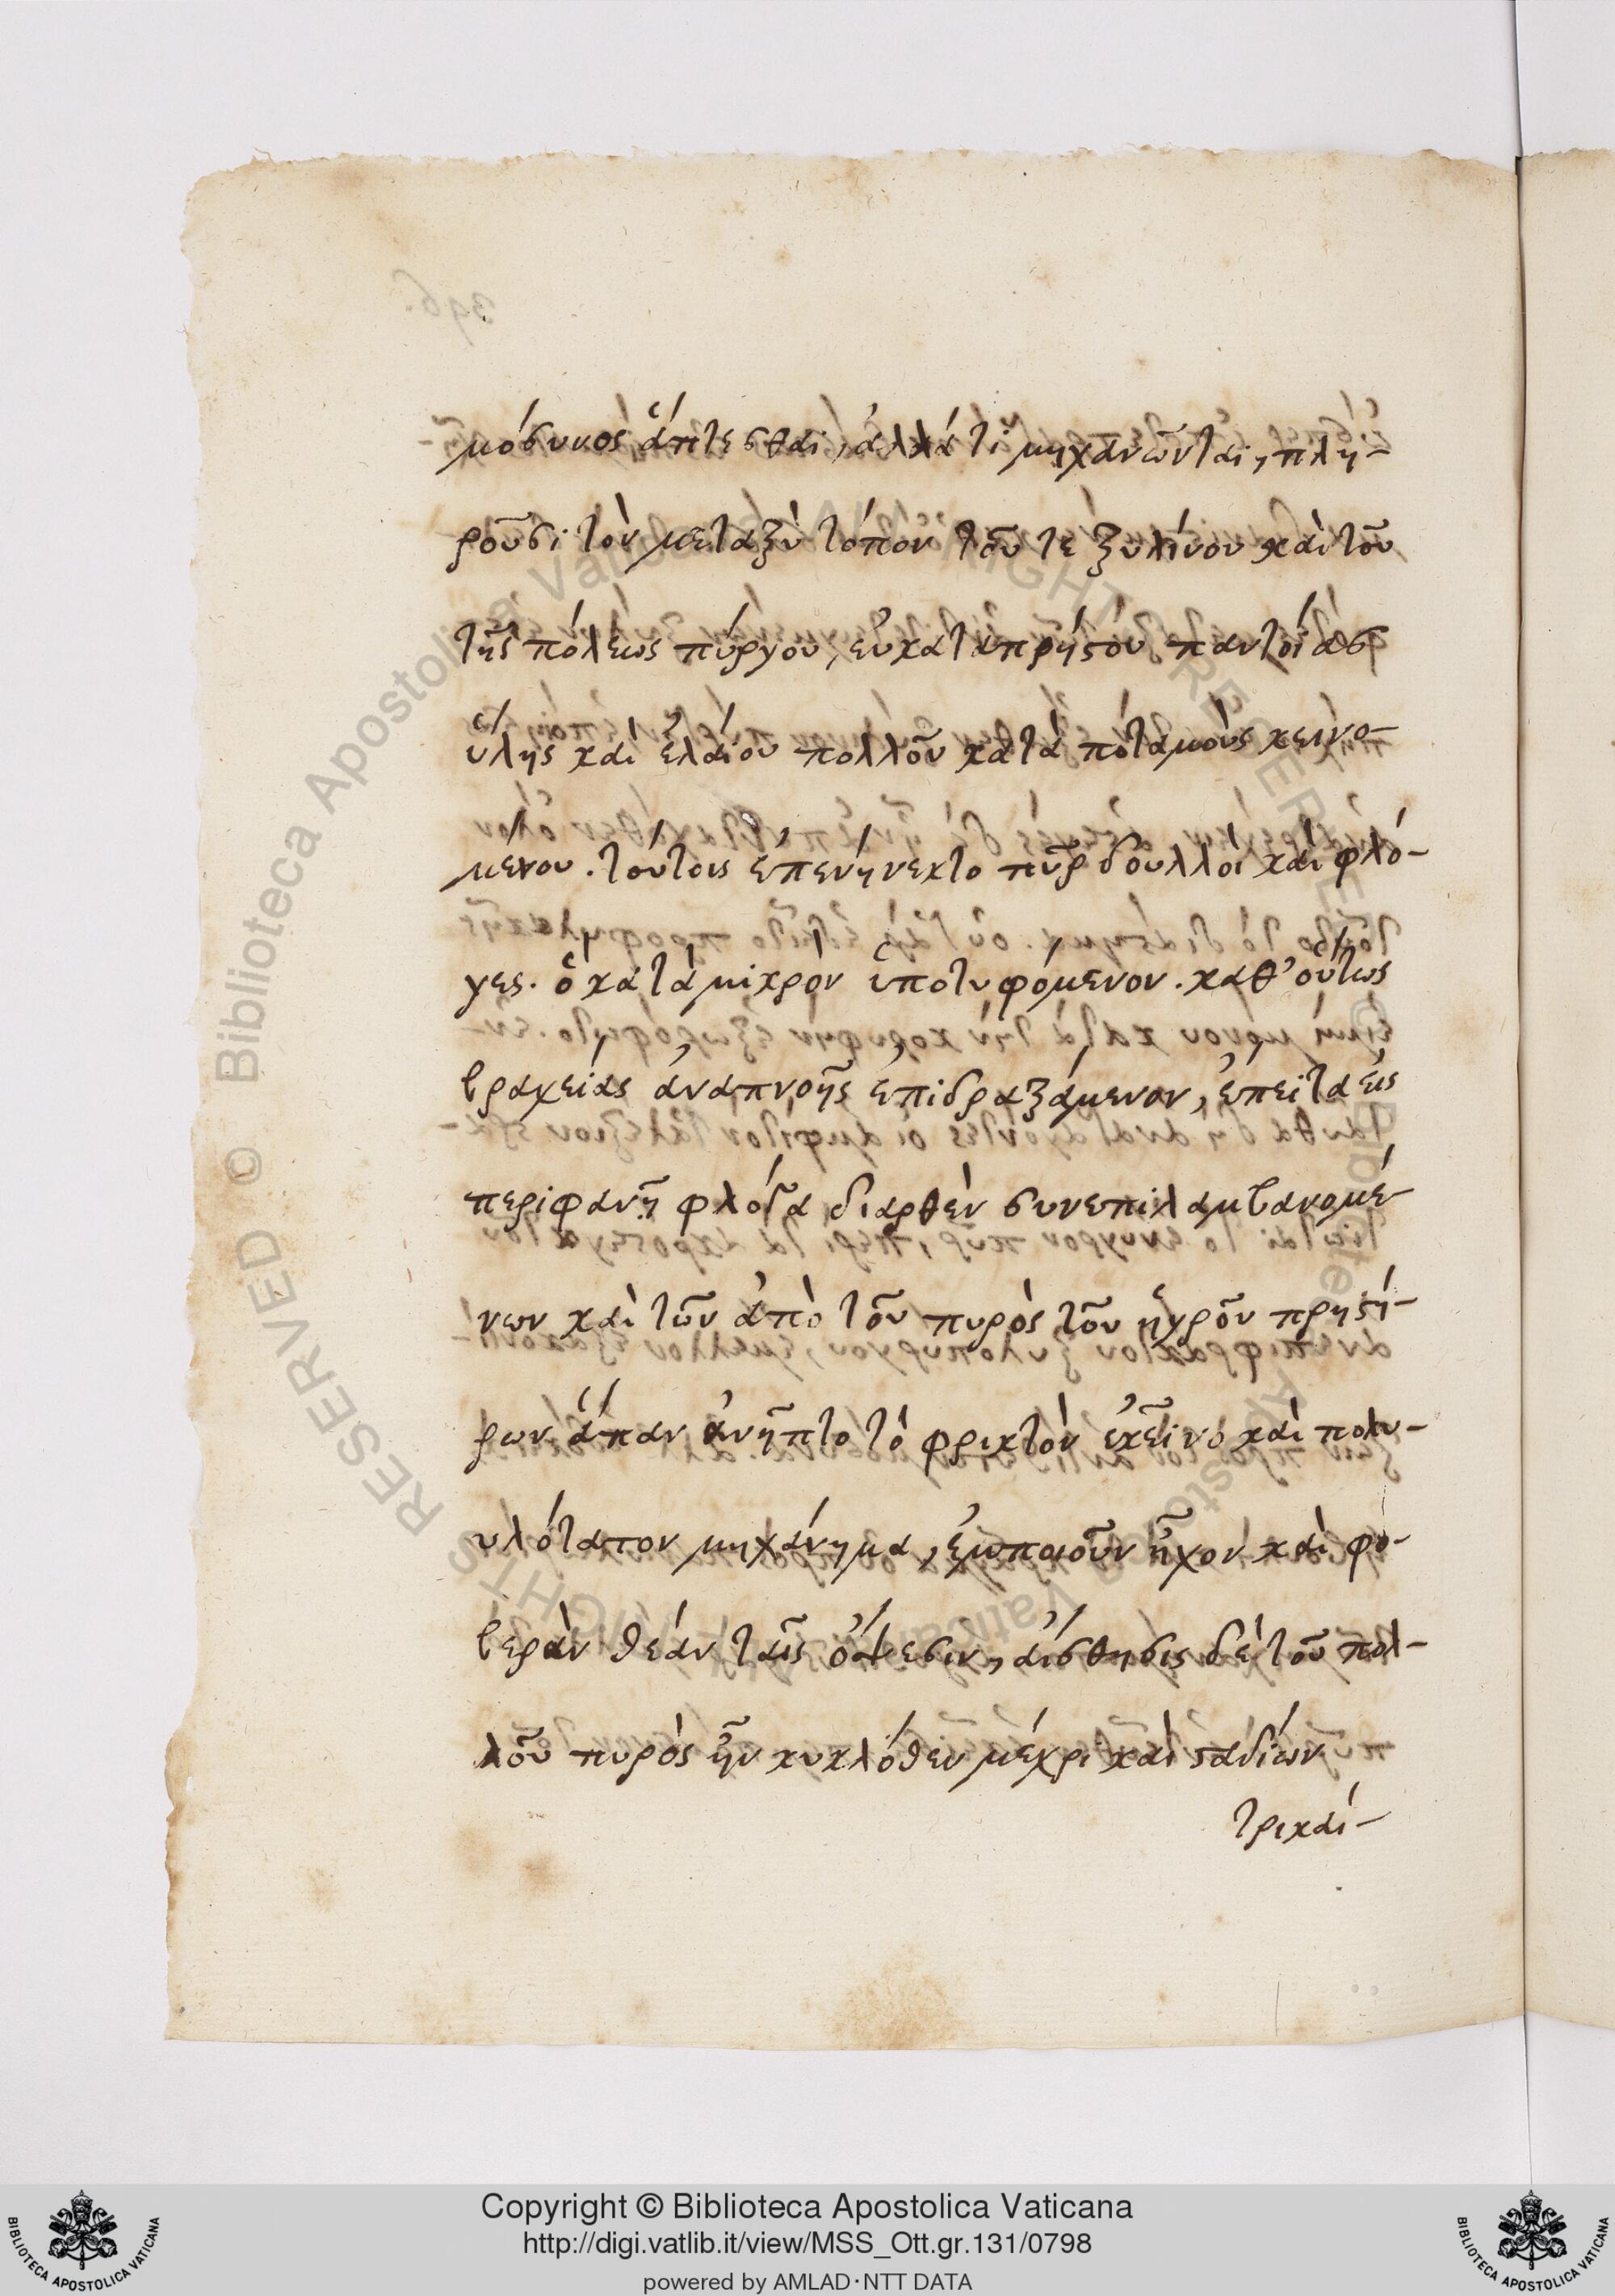 μόσυνος ἅπτεσθαι, ἀλλά τι μηχανῶνται, πλη-
ροῦσι τὸν μεταξὺ τόπον τοῦ τε ξυλίνου καὶ τοῦ
τῆς πόλεως πύργου, εὐκαταπρήστου παντοίας
ὕλης καὶ ἐλαίου πολλοῦ κατὰ ποταμοὺς κεινο-
μένου. τούτοις ἐπενήνεκτο πῦρ δουλλοὶ καὶ φλό-
γες. ὃ κατὰ μικρὸν ὑποτυφόμενον. καθ' οὕτως
βραχείας ἀναπνοῆς ἐπιδραξάμενον, ἔπειτα εἰς
περιφανῆ φλόγα διαρθὲν συνεπιλαμβανομέ-
νων καὶ τῶν ἀπὸ τοῦ πυρὸς τοῦ ἡγροῦ πρηστή-
ρων ἅπαν ἀνῆπτο τὸ φρικτὸν ἐκεῖνο καὶ πολυ-
υλότατον μηχάνημα, ἐμποιοῦν ἦχον καὶ φο-
βερὰν θέαν ταῖς ὄψεσιν, αἴσθησις δὲ τοῦ πολ-
λοῦ πυρὸς ἦν κυκλόθεν μέχρι καὶ σταδίων
τρικαί-
396.
Copyright © Biblioteca Apostolica Vaticana
http://digi.vatlib.it/view/MSS_Ott.gr.131/0798
powered by AMLAD · NTT DATA
BIBLIOTECA APOSTOLICA VATICANA
BIBLIOTECA APOSTOLICA VATICANA